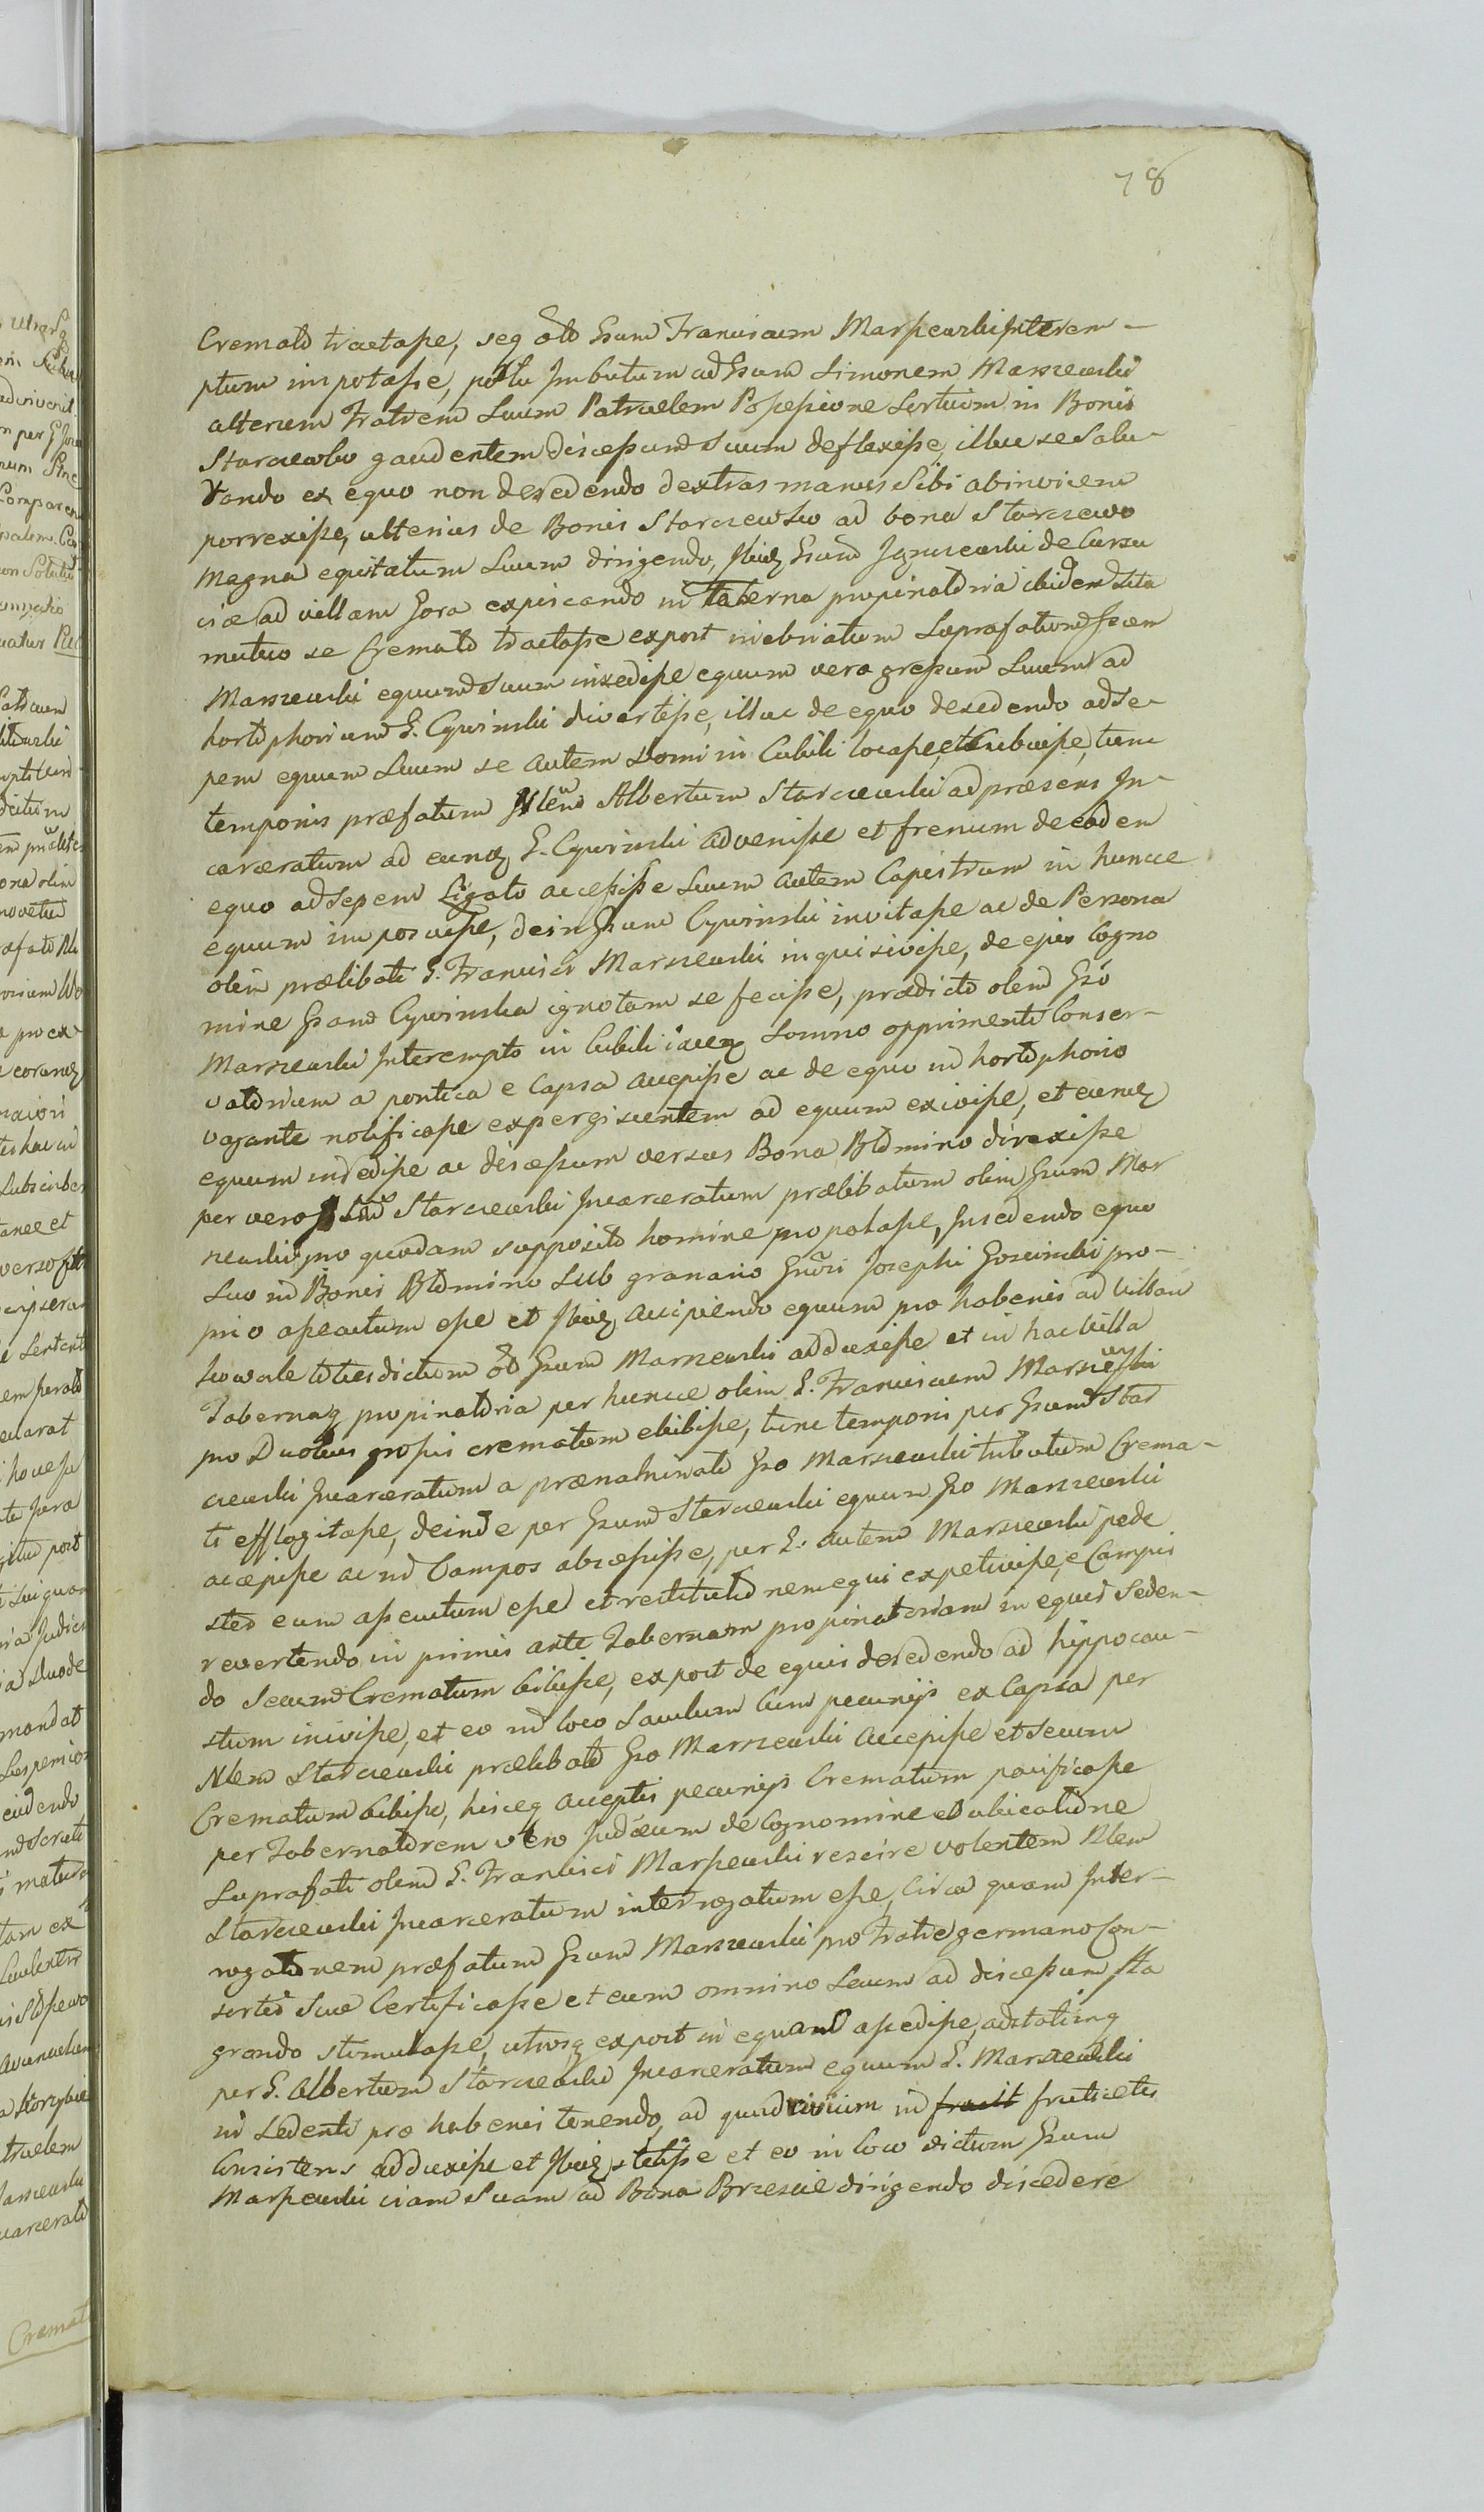 78
Cremato tractasse, seq olo Gsum Franciscum Marszewski Interem-
ptum impotasse, potu Imbutum ad Gsum Simonem Marszewski
alterum Fratrem Suum Patruelem Possessione Sortium in Bonis
Starczewko gaudentem discessum Suum deflexisse, illuc se Salu-
tando ex equo non descedendo dextras manus Sibi abinvicem
porrexisse, ulterius de Bonis Starczewko ad bona Starczewo
Magna equitatum Suum dirigendo, Ibiq Gsum de Cursu
viæ ad villam Gora expiscando in taberna propinatoria ibidem sita
mutuo se Cremato tractasse expost inebriatum Suprafatum
Marszewski equum Suum insedisse equum vero gressum Suum ad
hortophorium G. Cywinski divertisse, illuc de equo descedendo ad Se-
pem equum Suum se autem domi in Cubili locasse, et Cubuisse, tunc
temporis præfatum Nlem Albertum Starczewski ad præsens In-
carceratum ad eunq G. Cywinski advenisse et frenum de eodem
equo ad Sepem Ligato accepisse Suum autem Capistrum in huncce
equum imposuisse, dein Gsum Cywinski invitasse ac de Persona
olim prælibati G. Francisci Marszewski inquisivisse, de ejus Cogno
mine Gsam Cywinska ignotam se fecisse, prædicto olim Gso
Marszewski Interempto in Cubili iaceq Somno opprimenti Conser-
vatorium a pontica e Capsa accepisse ac de equo in hortophorio
vagante notificasse expergiscentem ad equum exivisse, et eunq
equum insedisse ac discessum versus Bona Blomino direxisse
per vero Starczewski Incarceratum prælibatum olim Gsum Mar
szewski pro quodam supposito homine propotasse, Insedendo equo
Suo in Bonis Blomino Sub granario Gnosi Josephi Gosciniski pro-
prio assecutum esse et Ibiq accipiendo equum pro habenis ad Villam
Suwale totiesdictum olo Gsum Marszewski adduxisse et in hac Villa
Tabernaq propinatoria per huncce olim G. Franciscum Marszewski
pro Duobus grossis crematum ebibisse, tunc temporis per Gsum Star
czewski Incarceratum a prænominato Gso Marszewski tributum Crema-
ti efflagitasse, deinde per Gsum Starczewski equum Gso Marszewski
accepisse ac in Campos abscessisse, per G. autem Marszewski pede
stro eum assecutum esse et restitutionem equi expetivisse, e Campis
revertendo in primis ante Tabernam propinatoriam in equis Seden-
do Secum Crematum bibisse, expost de equis descedendo ad hippocau-
stum inivisse, et eo in loco Saculum Cum pecunijs ex Capsa per
Nlem Starczewski prælibato Gso Marszewski accepisse et Secum
Crematum bibisse, hisceq acceptis pecunijs Crematum pacificasse
per Tabernatorem vero Judæum de Cognomine et ubicatione
Suprafati olim G. Francisci Marszewski rescire volentem Nlem
Starczewski Incarceratum interrogatum esse, Circa quam Inter-
rogationem præfatum Gsum Marszewski pro Fratre germano Con-
sortis Suæ Certificasse et eum omnino Secum ad discessum Ita
grando stimulasse, utrosq expost in equam assedisse, adstatimq
per G. Albertum Starczewski Incarceratum equum G. Marszewski
in Sedenti pro habenis tenendo, ad quadrivium in fruit fruticetis
Consistens adduxisse et Ibiq stetisse et eo in loco dictum Gsum
Marszewski viam Suam ad Bona Brzescie dirigendo discedere